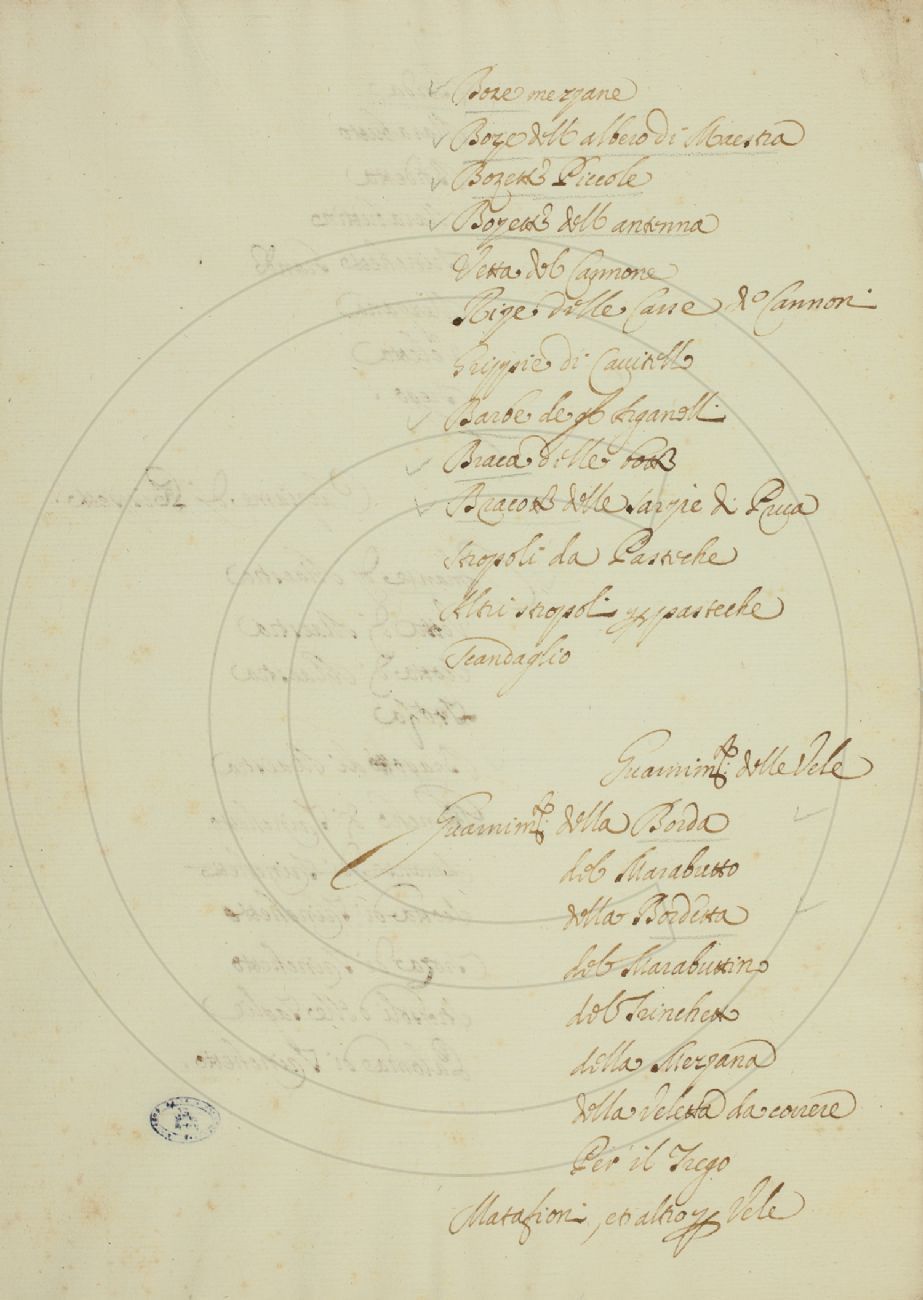 Boze mezzane
Boze dell albero di Maestra
Bozette Piccole
Bozette dell antenna
Vetta del Cannone
Rize delle Casse d.o Cannoni
Grippie di Cavitelli
Barbe de gl'
Braca delle botte
Bracotti delle sarzie di Poza
Stropoli da Pasteche
Altri stropoli p pasteche
Scandaglio
Guarnim.ti delle Vele
Guarnim.ti della Borda
del Marabutto
della Bordetta
del Marabuttino
del Trinchetto
della Mezzana
della Veletta da correre
Per il Trego
Matafioni, et altro p Vele